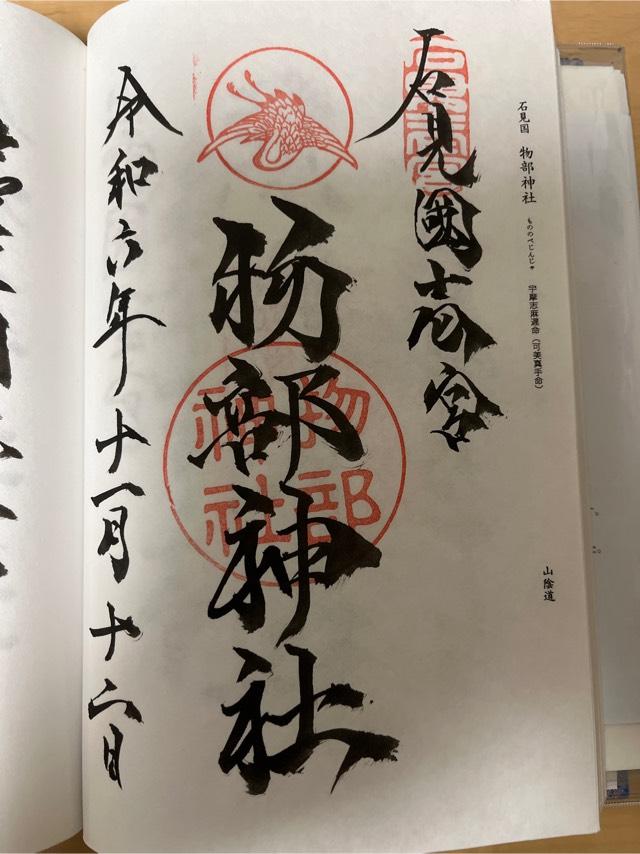 石見国 物部神社 もののべじんじゃ 宇摩志麻遅命(可美真手命)
山陰道
石見國壱宮
物部神社
物部神社
令和六年十一月十二日